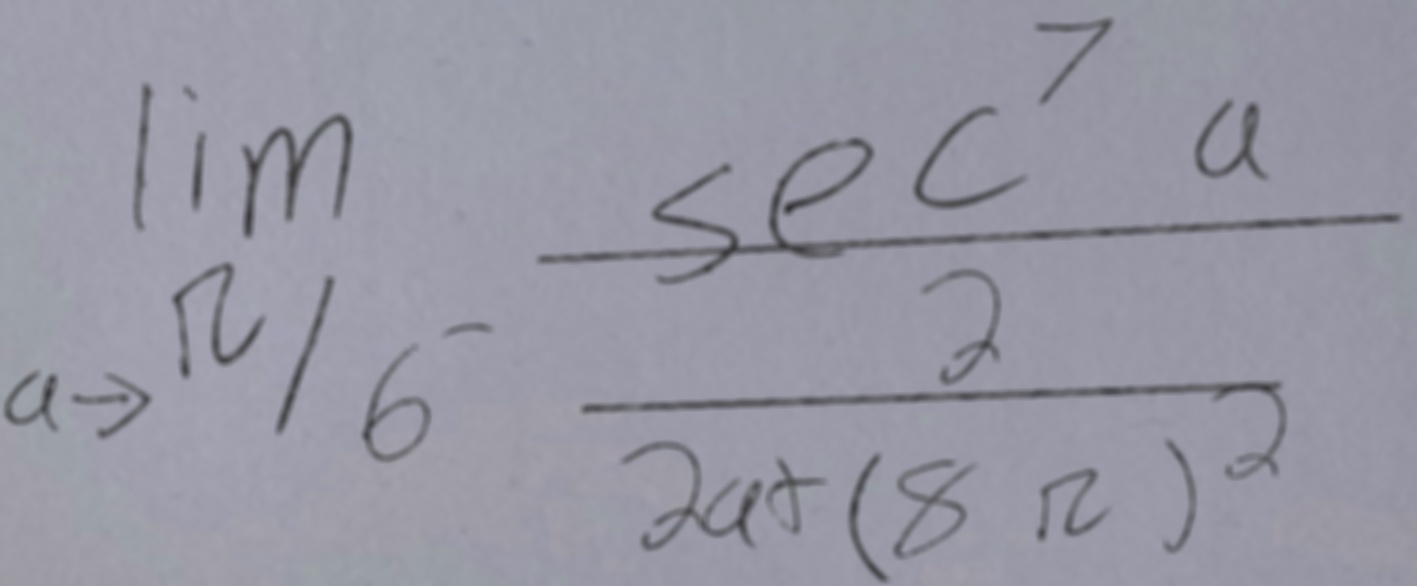 lim a→π/6⁻ sec⁷ a
2
2a+(8π)²